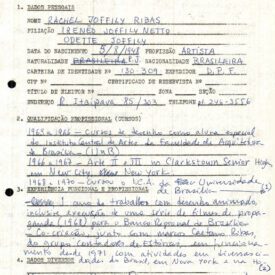 1. DADOS PESSOAIS
NOME RACHEL JOFFILY RIBAS
FILIAÇÃO IRENEO JOFFILY NETTO
ODETTE JOFFILY
DATA DO NASCIMENTO 5/8/1948 PROFISSÃO ARTISTA
NATURALIDADE BRASILEIRA NACIONALIDADE BRASILEIRA
CARTEIRA DE IDENTIDADE Nº 130 309 EXPEDIDOR D.P.F.
CTP Nº CERTIFICADO DE RESERVISTA Nº
TÍTULO DE ELEITOR Nº ZONA SEÇÃO
ENDEREÇO R. Itaipava 85/303 TELEFONE 246-3556
2. QUALIFICAÇÃO PROFISSIONAL (CURSOS)
Cursos de desenho como aluna especial
do Instituto Central de Artes da Faculdade de Arquitetura
de Brasília - (UnB)
1966 a 1967 - Arte II e III in Clarkstown Senior High,
em New City, New York.
1968 a 1970 - Curso no I.C.A. da Universidade
de Brasília
3. EXPERIÊNCIA FUNCIONAL E PROFISSIONAL
1 ano de trabalhos com desenho animado,
inclusive execução de uma série de filmes de propa-
ganda (1968) para o Banco Regional de Brasília
- Co-criação, junto com Ribas,
do grupo Contadores de Estórias, em funciona-
mento desde 1971 com atividades em diversas
4. DADOS DIVERSOS dades do Brasil, em New York e uma